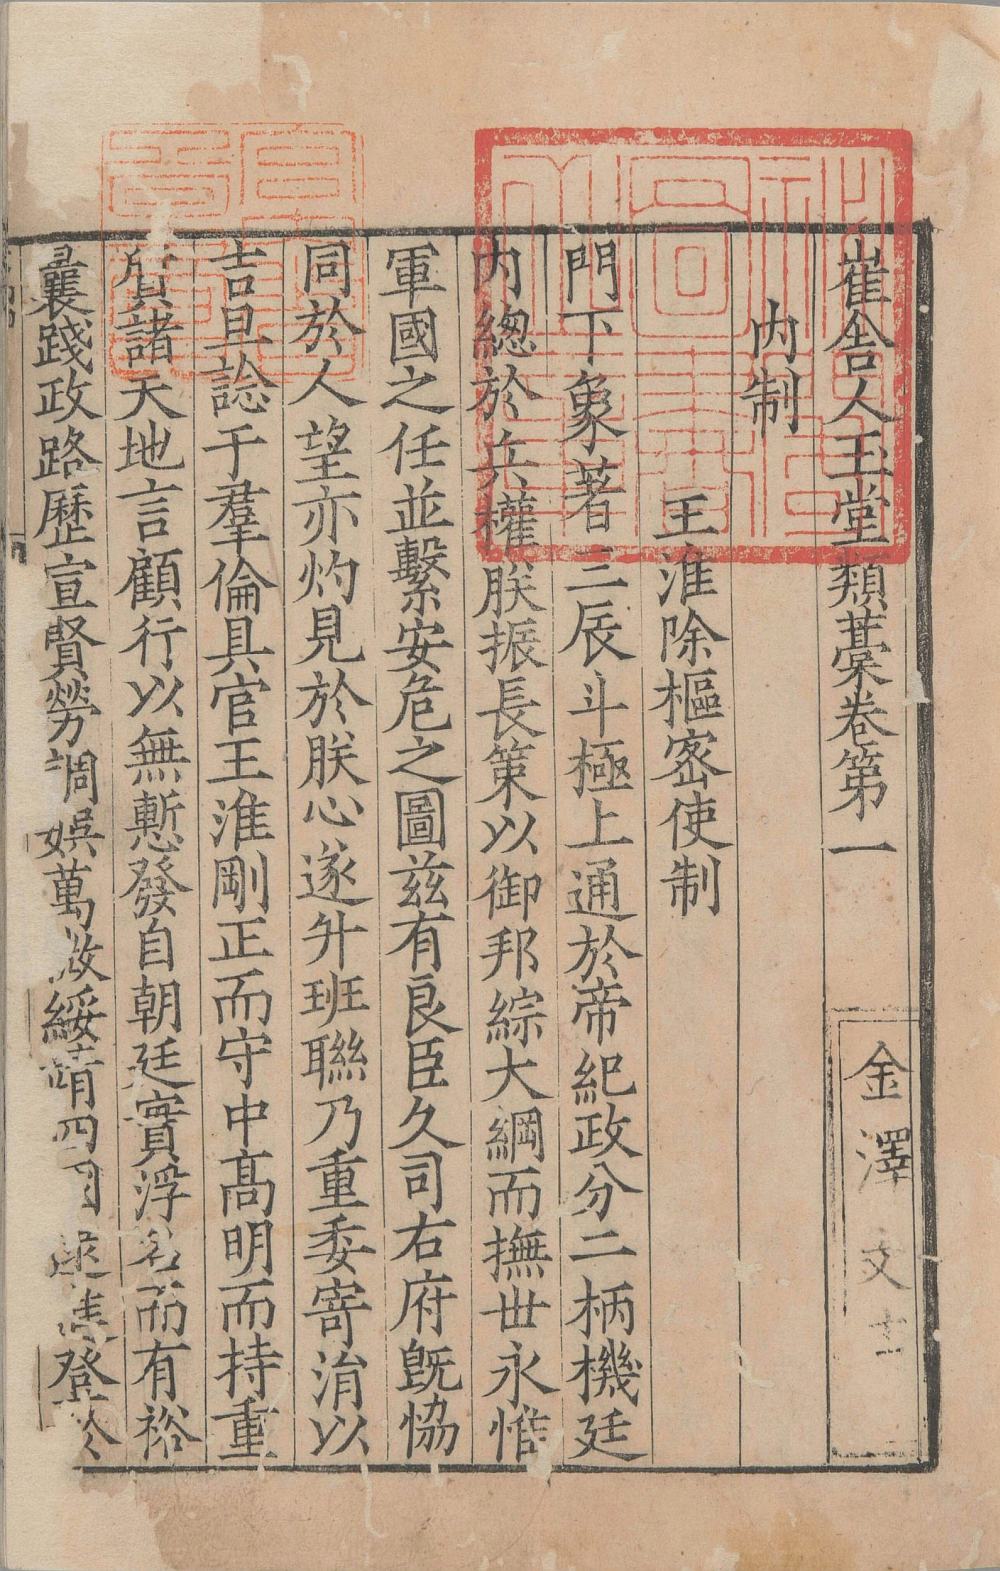 崔舍人玉堂類藁卷第一
金澤文
内制
王淮除樞密使制
門下象著三辰斗極上通於帝紀政分二柄機廷
内總於兵權朕振長策以御邦綜大綱而撫世永惟
軍國之任並繫安危之圖兹有良臣久司右府旣恊
同於人望亦灼見於朕心遂升班聯乃重委寄涓以
吉旦諗于羣倫具官王淮剛正而守中髙明而持重
質諸天地言顧行以無慙發自朝廷實浮名而有裕
曩踐政路歷宣賢勞調娯萬㣲綏靖四國登於